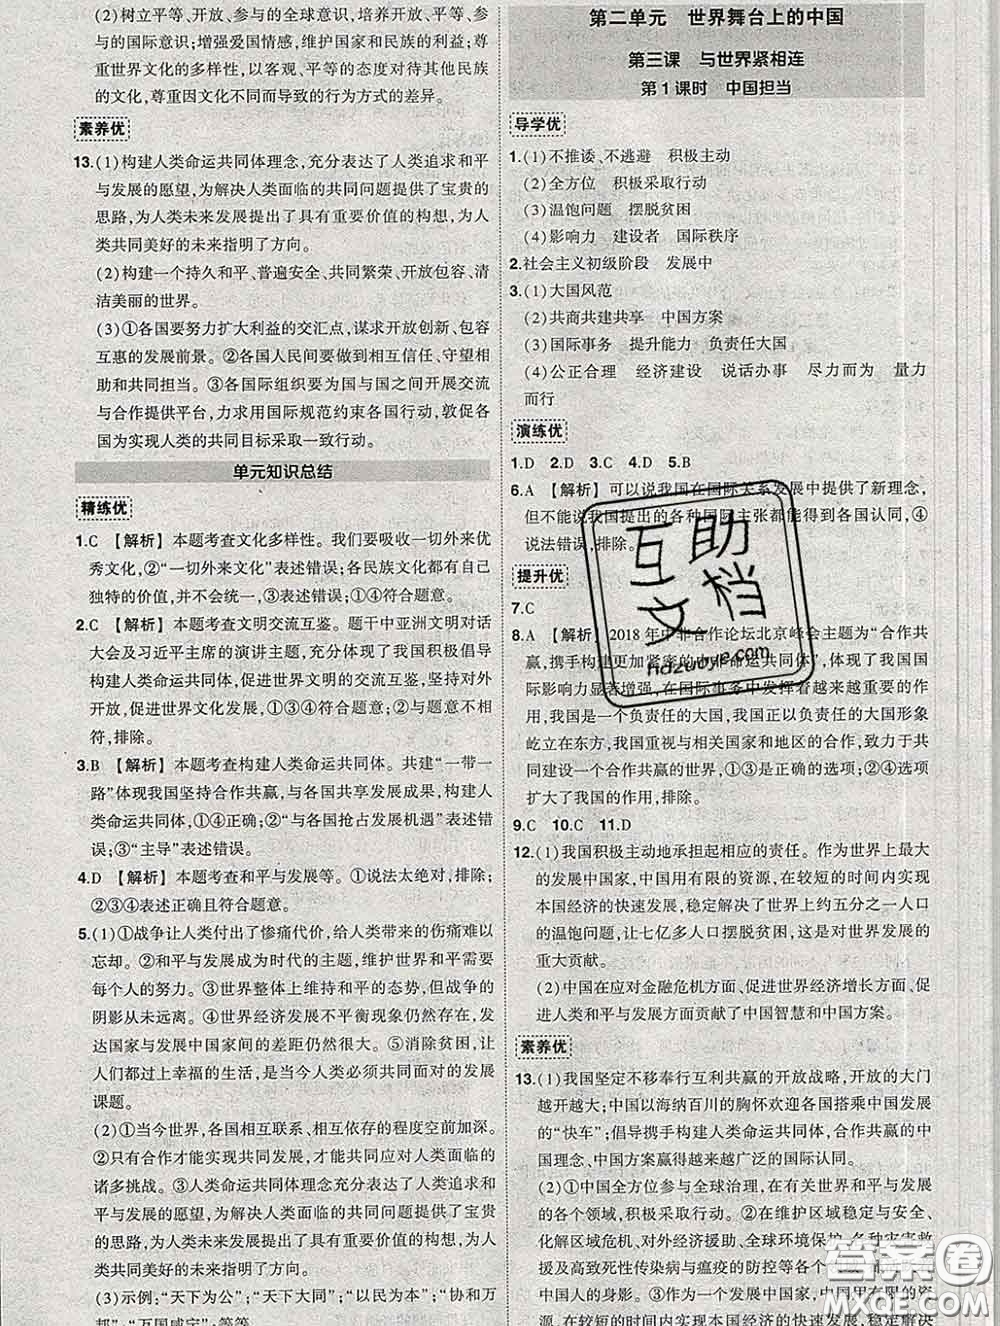 (2)树立平等、开放、参与的全球意识,培养开放、平等、参与
的国际意识;增强爱国情感,维护国家和民族的利益;尊
重世界文化的多样性,以客观、平等的态度对待其他民族
的文化,尊重因文化不同而导致的行为方式的差异。
素养优
13.(1)构建人类命运共同体理念,充分表达了人类追求和平
与发展的愿望,为解决人类面临的共同问题提供了宝贵的
思路,为人类未来发展提出了具有重要价值的构想,为人
类共同美好的未来指明了方向。
(2)构建一个持久和平、普遍安全、共同繁荣、开放包容、清
洁美丽的世界。
(3)①各国要努力扩大利益的交汇点,谋求开放创新、包容
互惠的发展前景。②各国人民间要做到相互信任、守望相
助和共同担当。③各国际组织要为国与国之间开展交流
与合作提供平台,力求用国际规范约束各国行动,敦促各
国为实现人类的共同目标采取一致行动。
单元知识总结
精练优
1.C 【解析】本题考查文化多样性。我们要吸收一切外来优
秀文化,②“一切外来文化”表述错误;各民族文化都有自己
独特的价值,并不会统一,③表述错误;①④符合题意。
2.C 【解析】本题考查文明交流互鉴。题干中亚洲文明对话
大会及习近平主席的演讲主题,充分体现了我国积极倡导
构建人类命运共同体,促进世界文明的交流互鉴,坚持对外
开放,促进世界文化发展,①③④符合题意;②与题意不相
符,排除。
3.B 【解析】本题考查构建人类命运共同体。共建“一带一
路”体现我国坚持合作共赢,与各国共享发展成果,构建人
类命运共同体,①④正确;②“与各国抢占发展机遇”表述错
误;③“主导”表述错误。
4.D 【解析】本题考查和平与发展等。①说法太绝对,排除;
②③④表述正确且符合题意。
5.(1)①战争让人类付出了惨痛代价,给人类带来的伤痛难以
忘却。②和平与发展成为时代的主题,维护世界和平需要
每个人的努力。③世界整体上维持和平的态势,但战争的
阴影从未远离。④世界经济发展不平衡现象依然存在,
发达国家与发展中国家间的差距仍然很大。⑤消除贫困,让
人们都过上幸福的生活,是当今人类必须共同面对的发展
课题。
(2)①当今世界,各国相互联系、相互依存的程度空前加深。
②只有合作才能实现共同发展,才能应对人类共同面临的
诸多挑战。③人类命运共同体理念充分表达了人类追求和
平与发展的愿望,为解决人类面临的共同问题提供了宝贵
的思路,为人类未来发展提出了具有重要价值的构想,为人
类共同美好的未来指明了方向。
(3)示例:“天下为公”;“天下大同”;“以民为本”;“协和万
邦”;“万国咸宁”;等等。
第二单元 世界舞台上的中国
第三课 与世界紧相连
第1课时 中国担当
导学优
1.(1)不推诿、不逃避 积极主动
(2)全方位 积极采取行动
(3)温饱问题 摆脱贫困
(4)影响力 建设者 国际秩序
2.社会主义初级阶段 发展中
3.(1)大国风范
(2)共商共建共享 中国方案
(3)国际事务 提升能力 负责任大国
(4)公正合理 经济建设 说话办事 尽力而为 量力
而行
演练优
1.D 2.D 3.C 4.D 5.B
6.A 【解析】可以说我国在国际关系发展中提供了新理念,
但不能说我国提出的各种国际主张都能得到各国认同,④
说法错误,排除。
提升优
7.C
8.A 【解析】2018年中非合作论坛北京峰会主题为“合作共
赢,携手构建更加紧密的中非命运共同体”,体现了我国国
际影响力显著增强,在国际事务中发挥着越来越重要的作
用,我国是一个负责任的大国,我国正以负责任的大国形象
屹立在东方,我国重视与相关国家和地区的合作,致力于共
同建设一个合作共赢的世界,①③是正确的选项;②④选项
扩大了我国的作用,排除。
9.C 10.C 11.D
12.(1)我国积极主动地承担起相应的责任。作为世界上最大
的发展中国家,中国用有限的资源,在较短的时间内实现
本国经济的快速发展,稳定解决了世界上约五分之一人口
的温饱问题,让七亿多人口摆脱贫困,这是对世界发展的
重大贡献。
(2)中国在应对金融危机方面、促进世界经济增长方面、促
进人类和平与发展方面贡献了中国智慧和中国方案。
素养优
13.(1)我国坚定不移奉行互利共赢的开放战略,开放的大门
越开越大;中国以海纳百川的胸怀欢迎各国搭乘中国发展
的“快车”;倡导携手构建人类命运共同体、合作共赢的中
国理念,中国方案赢得越来越广泛的国际认同。
(2)①中国全方位参与全球治理,在有关世界和平与发展的
各个领域,积极采取行动。②在维护区域稳定与安全、
化解区域动荡、对外经济援助、全球环境保护、各种灾害救
援以及高致死性传染病与瘟疫的防控等各个方面,都有
中国人的身影。③作为最大的发展中国家,中国用有限的
资源,在较短的时间内实现本国经济的快速发展,稳定
互助
文档
hdzuoye.com
答案圈
MXQE.COM